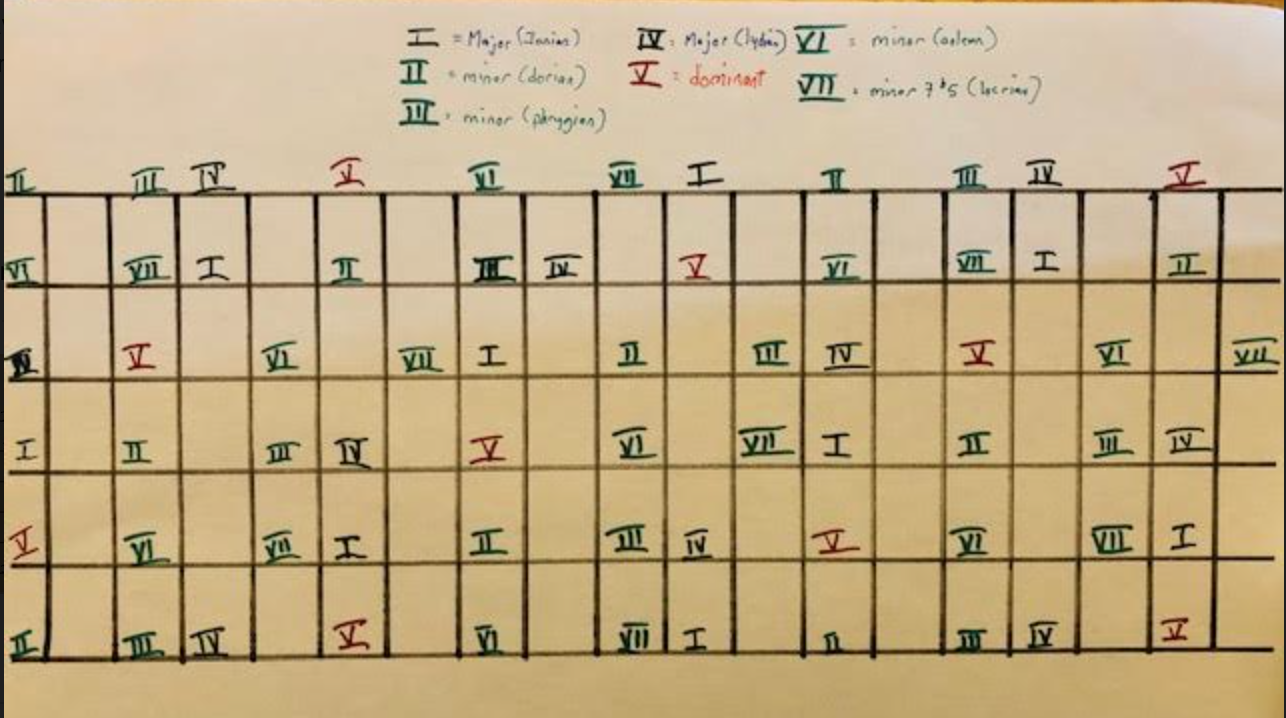 I = Major (Ionian) IV = Major (lydian) VI = minor (aolean)
II = minor (dorian) V = dominant VII = minor 7b5 (locrian)
III = minor (phrygian)
II III IV V VI VII I II III IV V
VI VII I II III IV V VI VII I II
IV V VI VII I II III IV V VI VII
I II III IV V VI VII I II III IV
V VI VII I II III IV V VI VII I
II III IV V VI VII I II III IV V